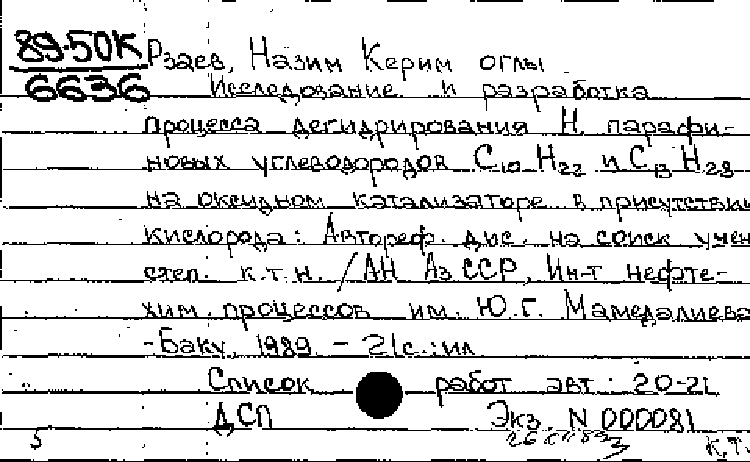 89-50К
6636
Рзаев, Назим Керим оглы
Исследование и разработка
процесса дегидрирования Н парафи-
новых углеводородов C10 H22 и C13 H28
на оксидном катализаторе в присутствии
кислорода: Автореф. дис. на соиск учен
степ. к.т.н. / АН АзССР, Ин-т нефте-
хим. процессов им. Ю.Г. Мамедалиева
- Баку, 1989. - 21с.: ил
Список работ авт.: 20-21
ДСП Экз. N 000081
5 К.Т.